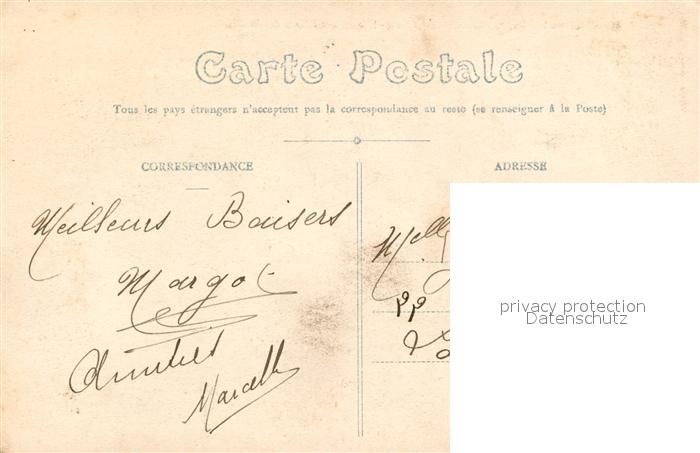 Carte Postale
Tous les pays étrangers n'acceptent pas la correspondance au resto (se renseigner à la Poste)
CORRESPONDANCE
ADRESSE
Meilleurs Baisers
Margot
Amitiés
Marcelle
Melle
privacy protection
Datenschutz